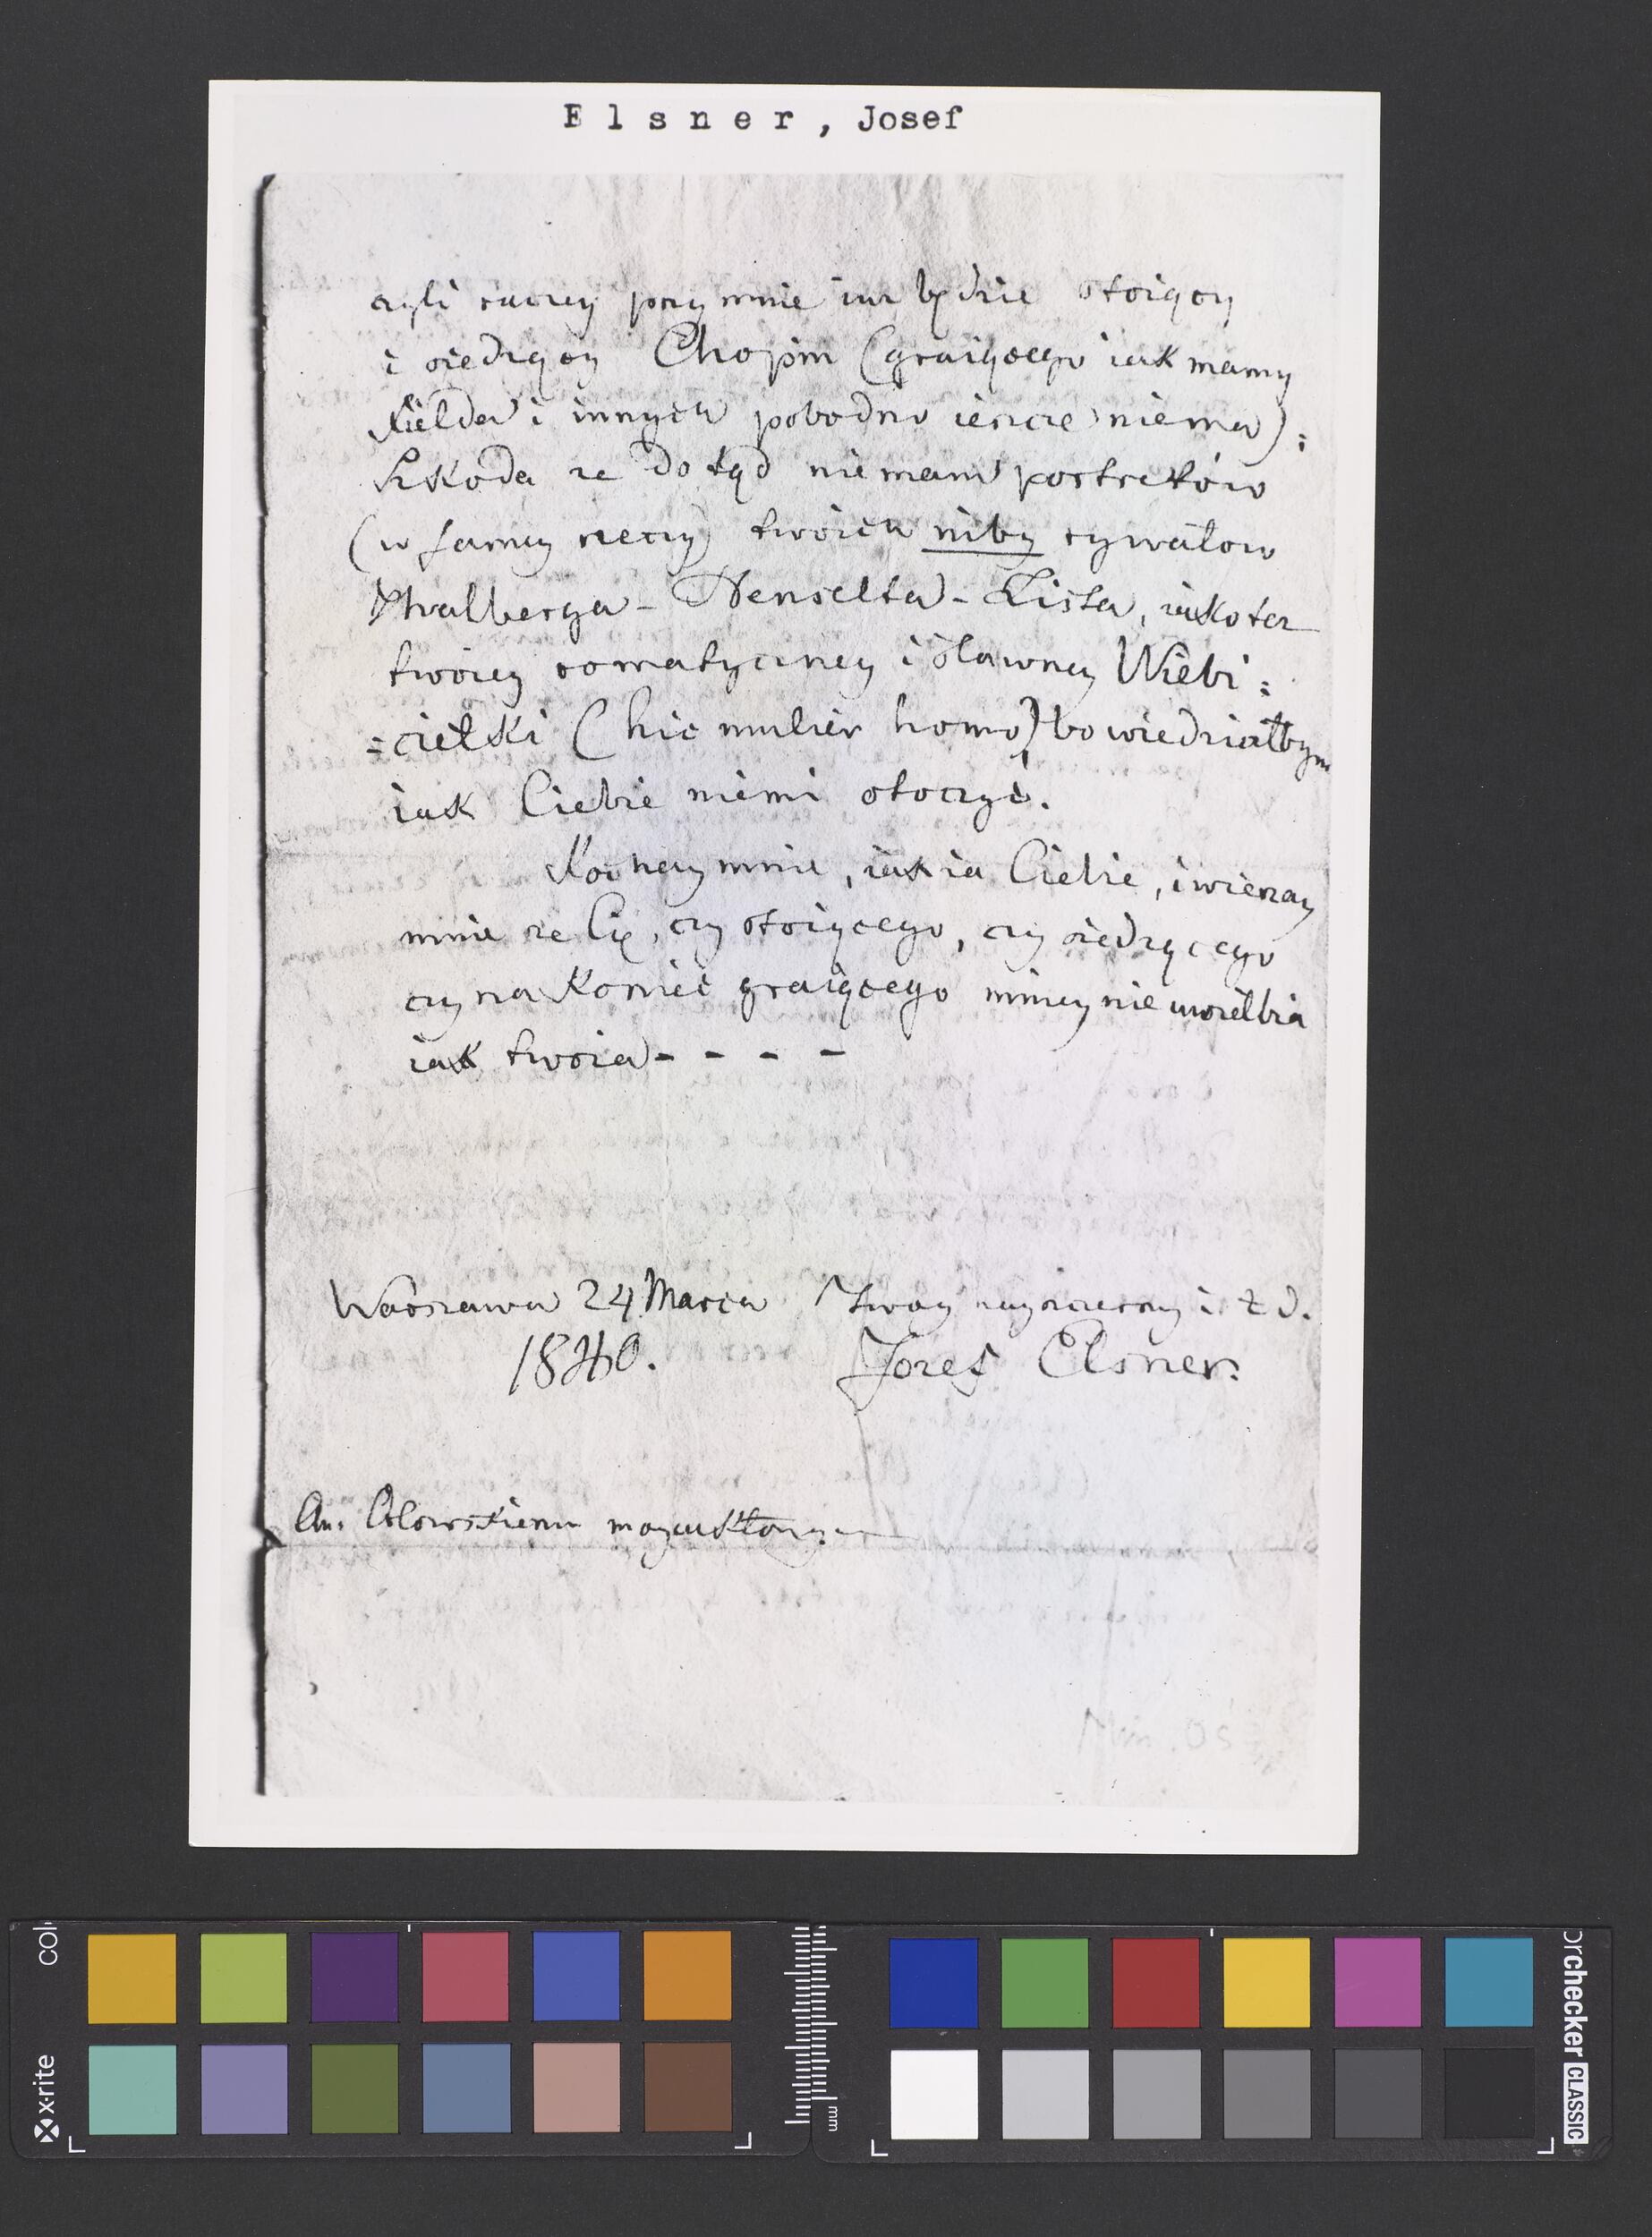 E l s n e r , Josef
czyli raczey przy mnie iuz będzie stoiący
i siedzący Chopin (graiącego iak mamy
Fielda i innych podobno ieszcze niema);
Szkoda ze dotąd niemam portretów
(w samey rzeczy) twoich niby rywalow
Thalberga - Henselta - Lista, iakotez
twoiey romatyczney i sławney Wielbi=
=cielki (hic mulier homo) bo wiedziałbym
iak Ciebie niemi otoczyć.
Kochay mnie, iak ia Ciebie, i wierzay
mnie ze Cię, czy stoiącego, czy siedzącego
czy na koniec graiącego mniey nie uwielbia
iak twoia - - - -
Warszawa 24 Marca Twoy nayszczerszy i t d.
1840. Jozef Elsner.
Orłowskiemu moy ukłony
Col
x·rite
mm
orchecker CLASSIC